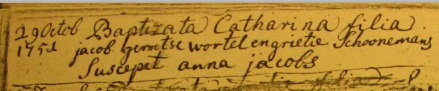 29 Octob Baptizata Catharina filia
1751 jacob gerritse wortel en grietie Schoonemans
Suscepit anna jacobs